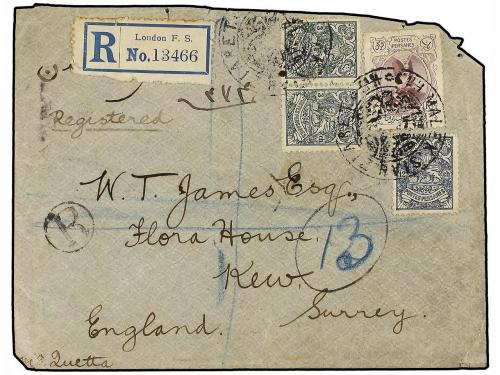 R London F. S.
No. 13466
POSTES
PERSANES
Registered
۳۷۳
R
W. T. James Esq.,
Flora House.
Kew.
Surrey.
England.
13
via Quetta